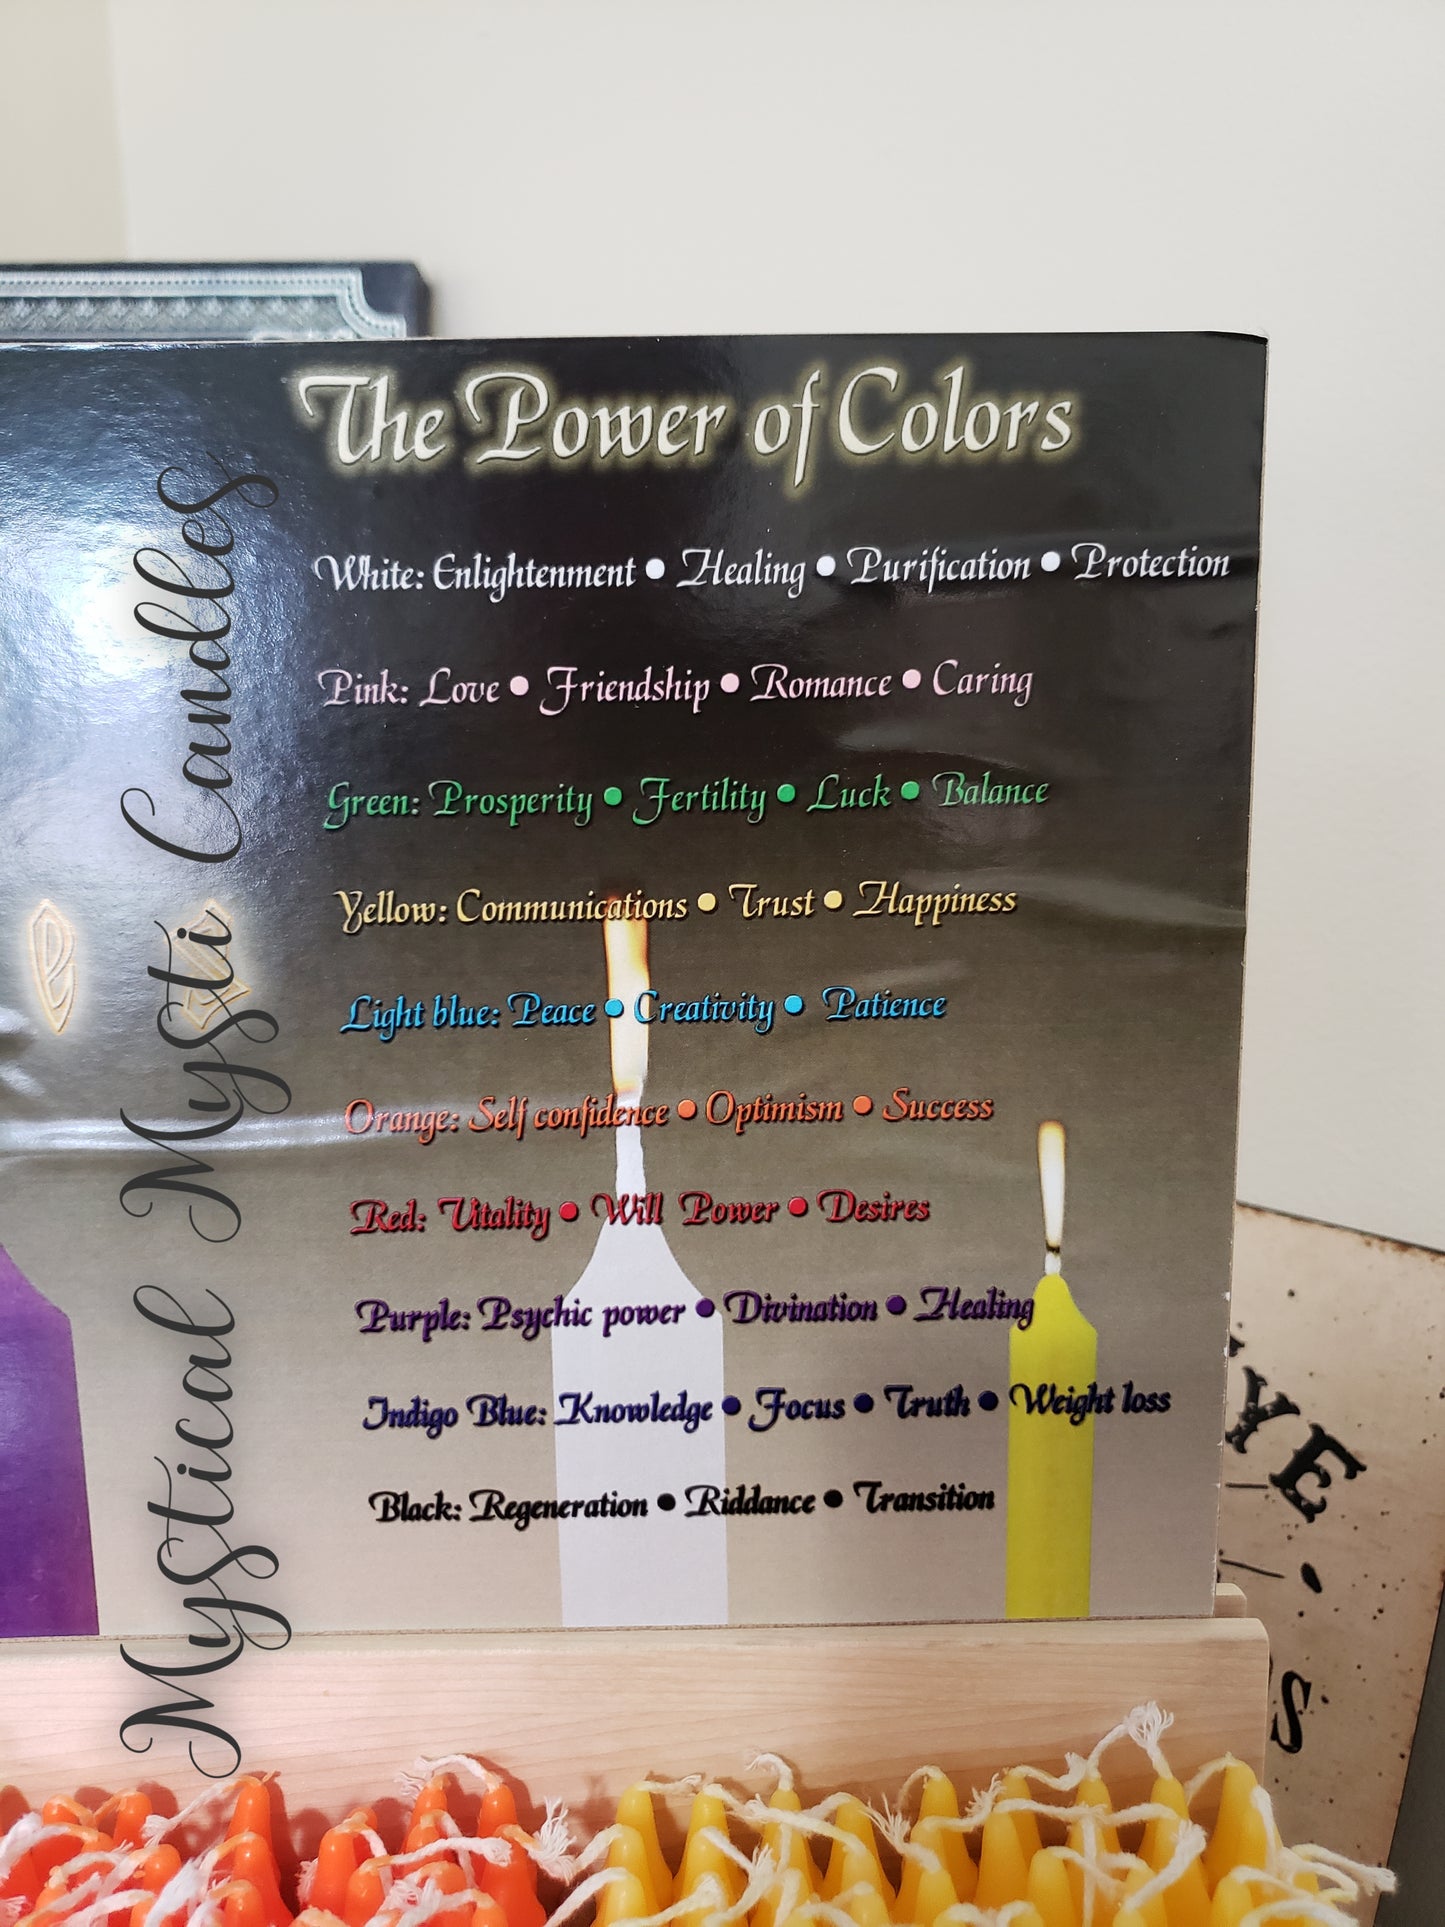 The Power of Colors
White: Enlightenment • Healing • Purification • Protection
Pink: Love • Friendship • Romance • Caring
Green: Prosperity • Fertility • Luck • Balance
Yellow: Communications • Trust • Happiness
Light blue: Peace • Creativity • Patience
Orange: Self confidence • Optimism • Success
Red: Vitality • Will Power • Desires
Purple: Psychic power • Divination • Healing
Indigo Blue: Knowledge • Focus • Truth • Weight loss
Black: Regeneration • Riddance • Transition
Mystical Mysti Candles